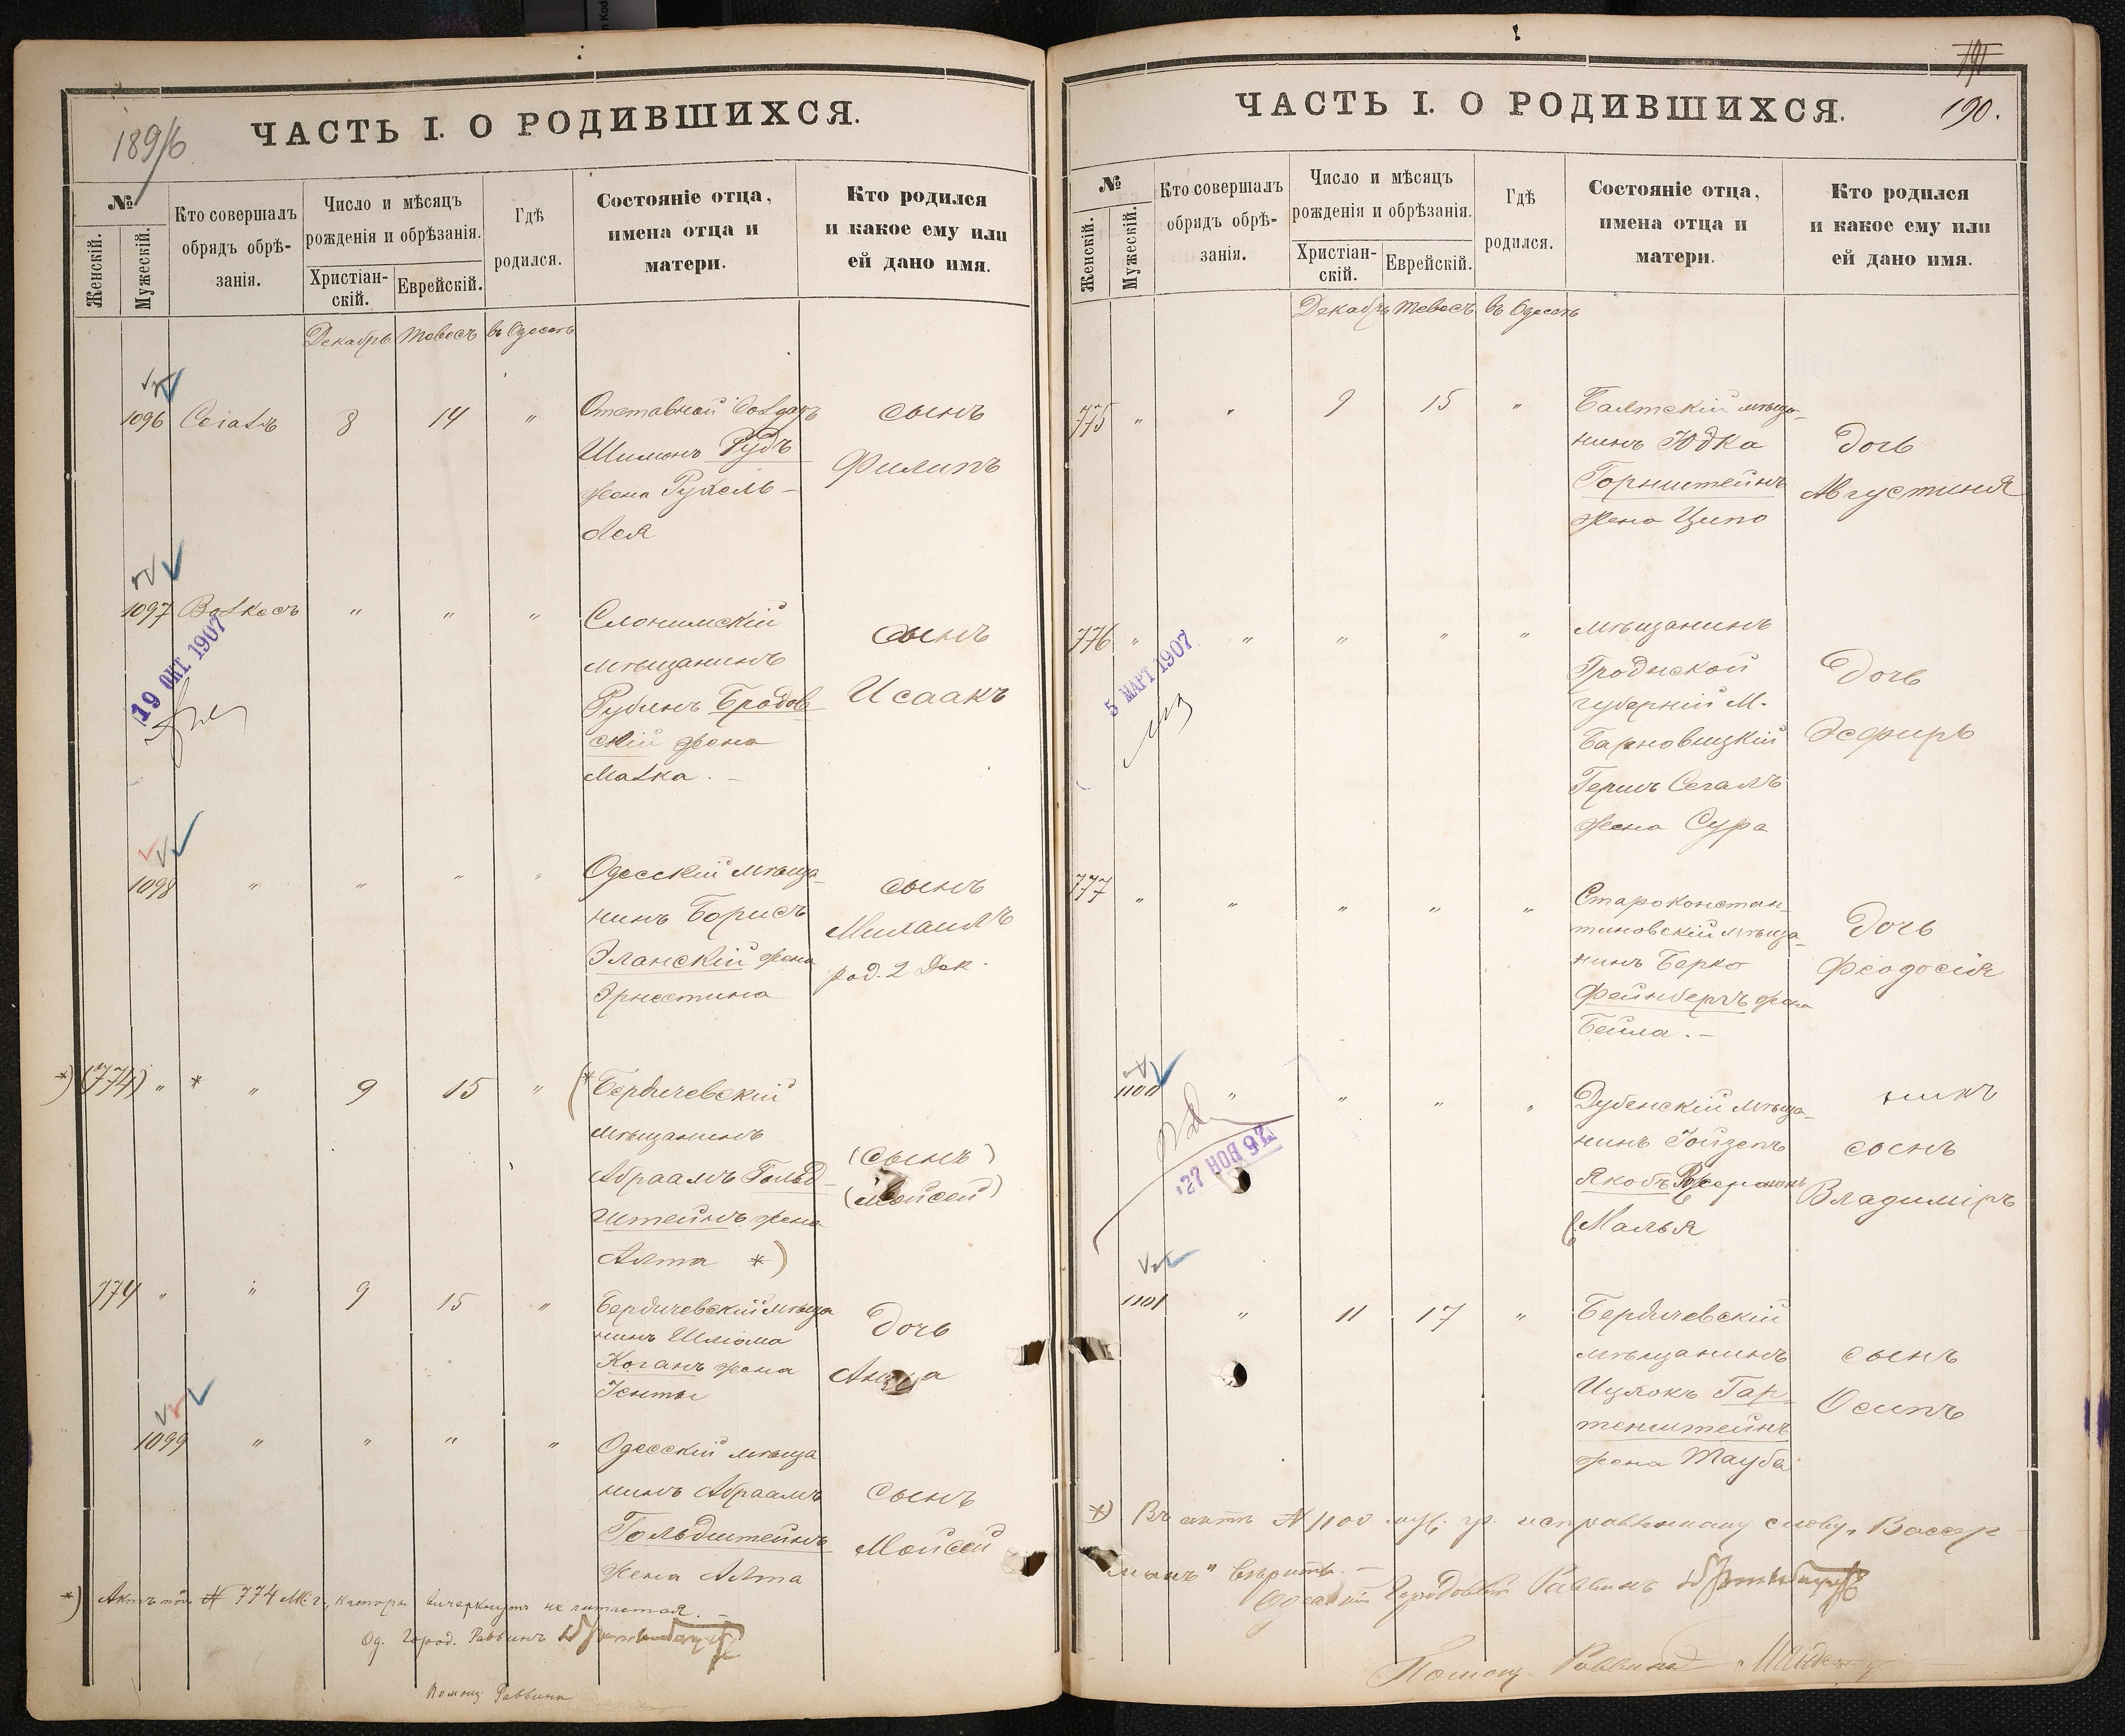 189/6
ЧАСТЬ I. О РОДИВШИХСЯ.
№
Женскій.
Мужескій.
Кто совершалъ
обрядъ обрѣ-
занія.
Число и мѣсяцъ
рожденія и обрѣзанія.
Христіан-
скій.
Еврейскій.
Гдѣ
родился.
Состояніе отца,
имена отца и
матери.
Кто родился
и какое ему или
ей дано имя.
Декабрь Тевесъ въ Одессѣ
1096 Сегалъ 8 14 " Отставной Солдатъ
Шимонъ Рудъ
жена Рухель-
Лея
сынъ
Филипъ
1097 Волкесъ " " " Слонимскій
мѣщанинъ
Рубинъ Бродов
скій жена
Малка. -
сынъ
Исаакъ
19 ОКТ. 1907
1098 " " " " Одесскій мѣща-
нинъ Борисъ
Эланскій жена
Эрнестина
сынъ
Михаилъ
род. 2 Дек.
*) (774) " * " 9 15 " (* Бердичевскій
мѣщанинъ
Абраамъ Гольд-
штейнъ жена
Алта *)
(сынъ)
(Мойсей)
774 " " 9 15 " Бердичевскій мѣща
нинъ Шлiома
Коганъ жена
Іенты
дочь
Анна
1099 " " " " Одесскій мѣща
нинъ Абраамъ
Гольдштейнъ
жена Алта
сынъ
Мойсей
*) Актъ под. № 774 М. г., который вычеркнутъ не читается. -
Од. Город. Раввинъ
Помощ. Раввина
191
190.
ЧАСТЬ I. О РОДИВШИХСЯ.
№
Женскій.
Мужескій.
Кто совершалъ
обрядъ обрѣ-
занія.
Число и мѣсяцъ
рожденія и обрѣзанія.
Христіан-
скій.
Еврейскій.
Гдѣ
родился.
Состояніе отца,
имена отца и
матери.
Кто родился
и какое ему или
ей дано имя.
Декабрь Тевесъ въ Одессѣ
775 " " 9 15 " Балтскій мѣща-
нинъ Юдка
Горнштейнъ
жена Ципо
дочь
Августиня
776 " " " " " мѣщанинъ
Гродnской
губерніи М.
Барновицкій
Гершъ Сегалъ
жена Сура
дочь
Эсфирь
5 МАРТ 1907
777 " " " " " Староконстан-
тиновскій мѣща-
нинъ Берко
Фейнбергъ жена
Бейла. -
дочь
Феодосія
1100 " " " " Дубенскій мѣща-
нинъ Іойзепъ
Якобъ Вассерманъ
Малья
сынъ
Владиміръ
27 НОЯ 92
1101 " 11 17 " Бердичевскій
мѣщанинъ
Ицлокъ Гар-
тенштейнъ
жена Тауба
сынъ
Осипъ
*) Въ актѣ № 1100 муж. гр. исправленному слову "Вассер
манъ" вѣрить. -
Одесскій Городовой Раввинъ
Помощ. Раввина